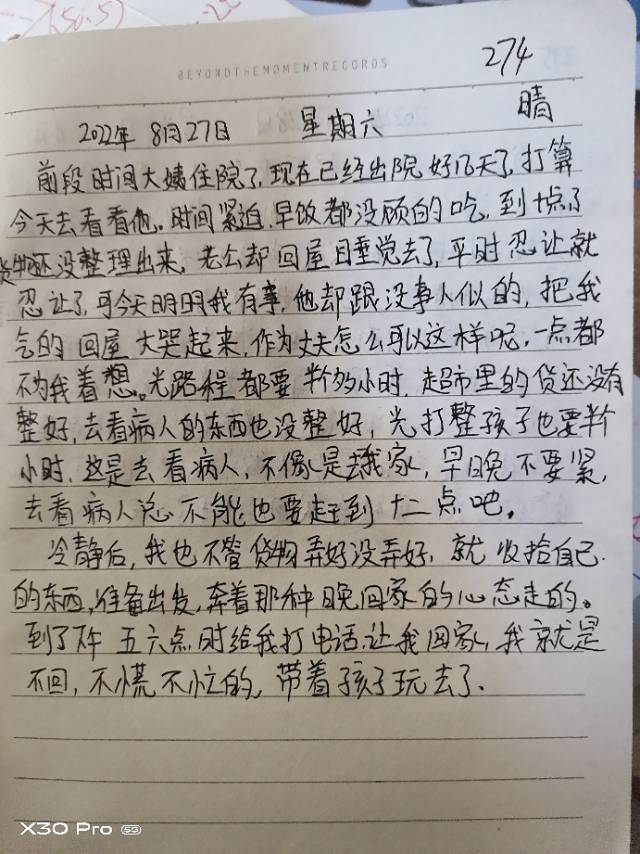 BEYONDTHEMOMENTRECORDS
274
2022年 8月27日 星期六 晴
前段时间大姨住院了,现在已经出院好几天了,打算
今天去看看他。时间紧迫,早饭都没顾的吃,到十点了
货物还没整理出来,老公却回屋睡觉去了,平时忍让就
忍让了,可今天明明我有事,他却跟没事人似的,把我
气的回屋大哭起来,作为丈夫怎么可以这样呢,一点都
不为我着想。光路程都要半个多小时,超市里的货还没有
整好,去看病人的东西也没整好,光打整孩子也要半个
小时,这是去看病人,不像是去我家,早晚不要紧,
去看病人总不能也要赶到十二点吧。
冷静后,我也不管货物弄好没弄好,就收拾自己
的东西,准备出发,奔着那种晚回家的心态走的。
到了下午五六点时给我打电话让我回家,我就是
不回,不慌不忙的,带着孩子玩去了.
X30 Pro 5G